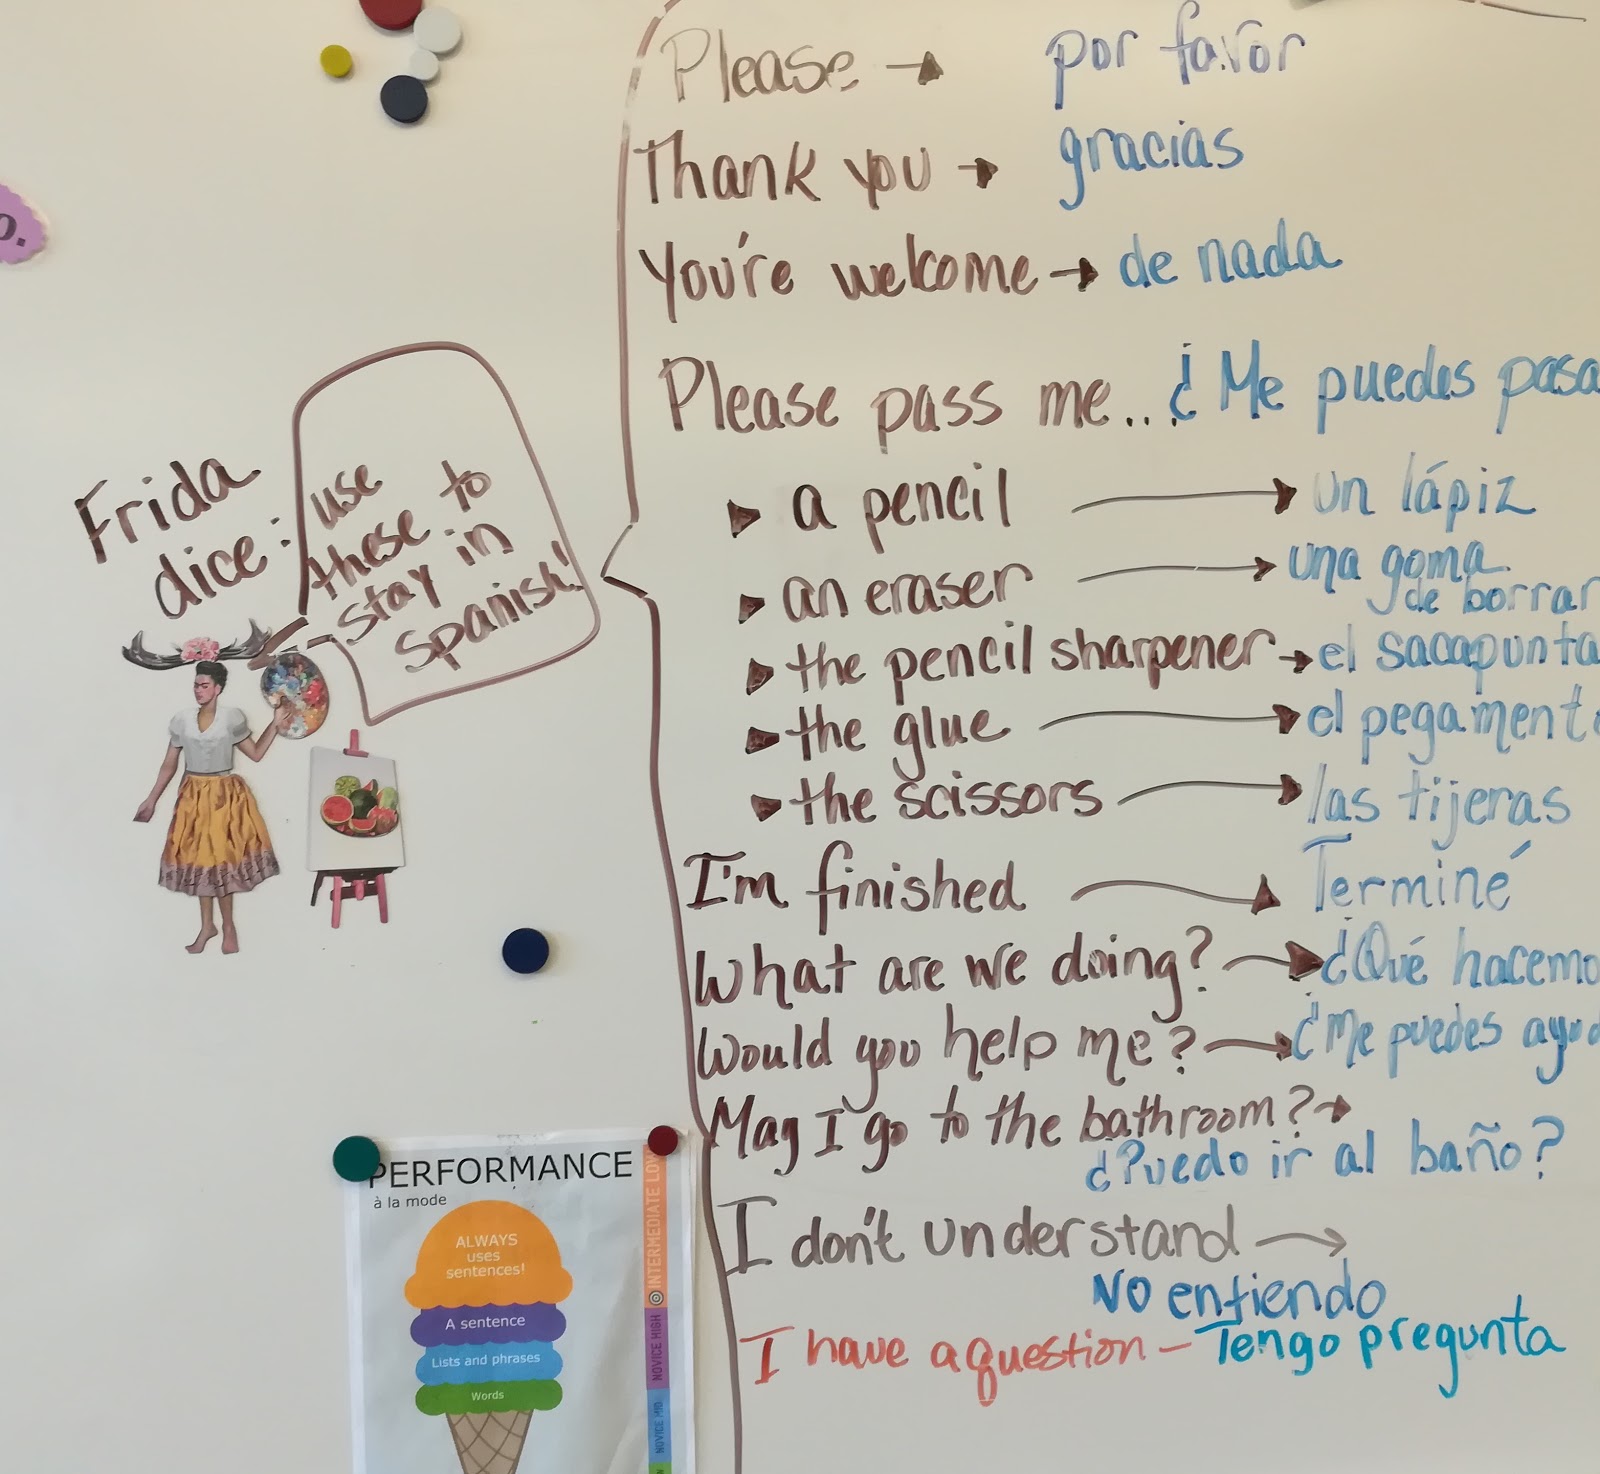 Please → por favor
Thank you → gracias
You're welcome → de nada
Please pass me... ¿Me puedes pasa
▸ a pencil → un lápiz
▸ an eraser → una goma
de borrar
▸ the pencil sharpener → el sacapunta
▸ the glue → el pegament
▸ the scissors → las tijeras
I'm finished → Terminé
What are we doing? → ¿Qué hacemo
Would you help me? → ¿Me puedes ayud
May I go to the bathroom? →
¿Puedo ir al baño?
I don't understand →
No entiendo
I have a question – Tengo pregunta
Frida
dice:
use
these to
stay in
Spanish!
o.
PERFORMANCE
à la mode
ALWAYS
uses
sentences!
A sentence
Lists and phrases
Words
INTERMEDIATE LOW
NOVICE HIGH
NOVICE MID